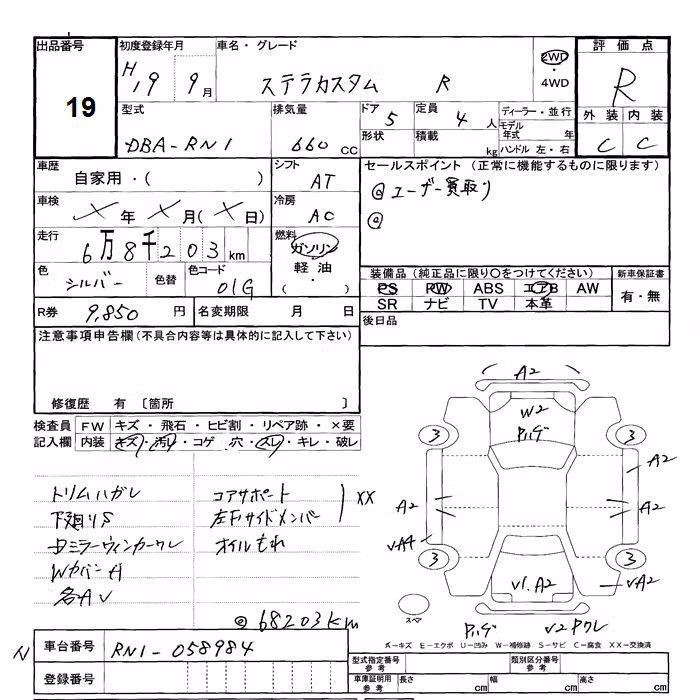 出品番号 19
初度登録年月 H19 9月
車名・グレード ステラカスタム R
2WD ・ 4WD
評価点 R
外装 内装
C C
型式 DBA-RN1
排気量 660 CC
ドア 5
形状
定員 4 人
積載 kg
ディーラー・並行
モデル年式 年
ハンドル 左・右
車歴 自家用・( )
シフト AT
セールスポイント (正常に機能するものに限ります)
@ユーザー買取り
@
車検 × 年 × 月(× 日)
冷房 AC
走行 6万8千203 km
燃料 ガソリン 軽油・( )
色 シルバー 色替
色コード 01G
装備品(純正品に限り○をつけてください)
新車保証書
PS PW ABS エアB AW
SR ナビ TV 本革
有・無
R券 9,850 円
名変期限 月 日
後日品
注意事項申告欄(不具合内容等は具体的に記入して下さい)
修復歴 有 〔箇所 〕
検査員 FW キズ・飛石・ヒビ割・リペア跡・×要
記入欄 内装 キズ・汚れ・コゲ・穴・スレ・キレ・破レ
トリムハガレ
下廻りS
ミラーウィンカーワレ
各AV
コアサポート
左右サイドメンバー
XX
オイルもれ
@68203km
A2
W2
3
3
A2
A2
3
3
V1.A2
VA2
スペア
V2ワレ
A-キズ E-エクボ U-凹み W-補修跡 S-サビ C-腐食 XX-交換済
N
車台番号 RN1-058984
登録番号
型式指定番号 参考
類別区分番号 参考
車庫証明用 参考
長さ cm
幅 cm
高さ cm